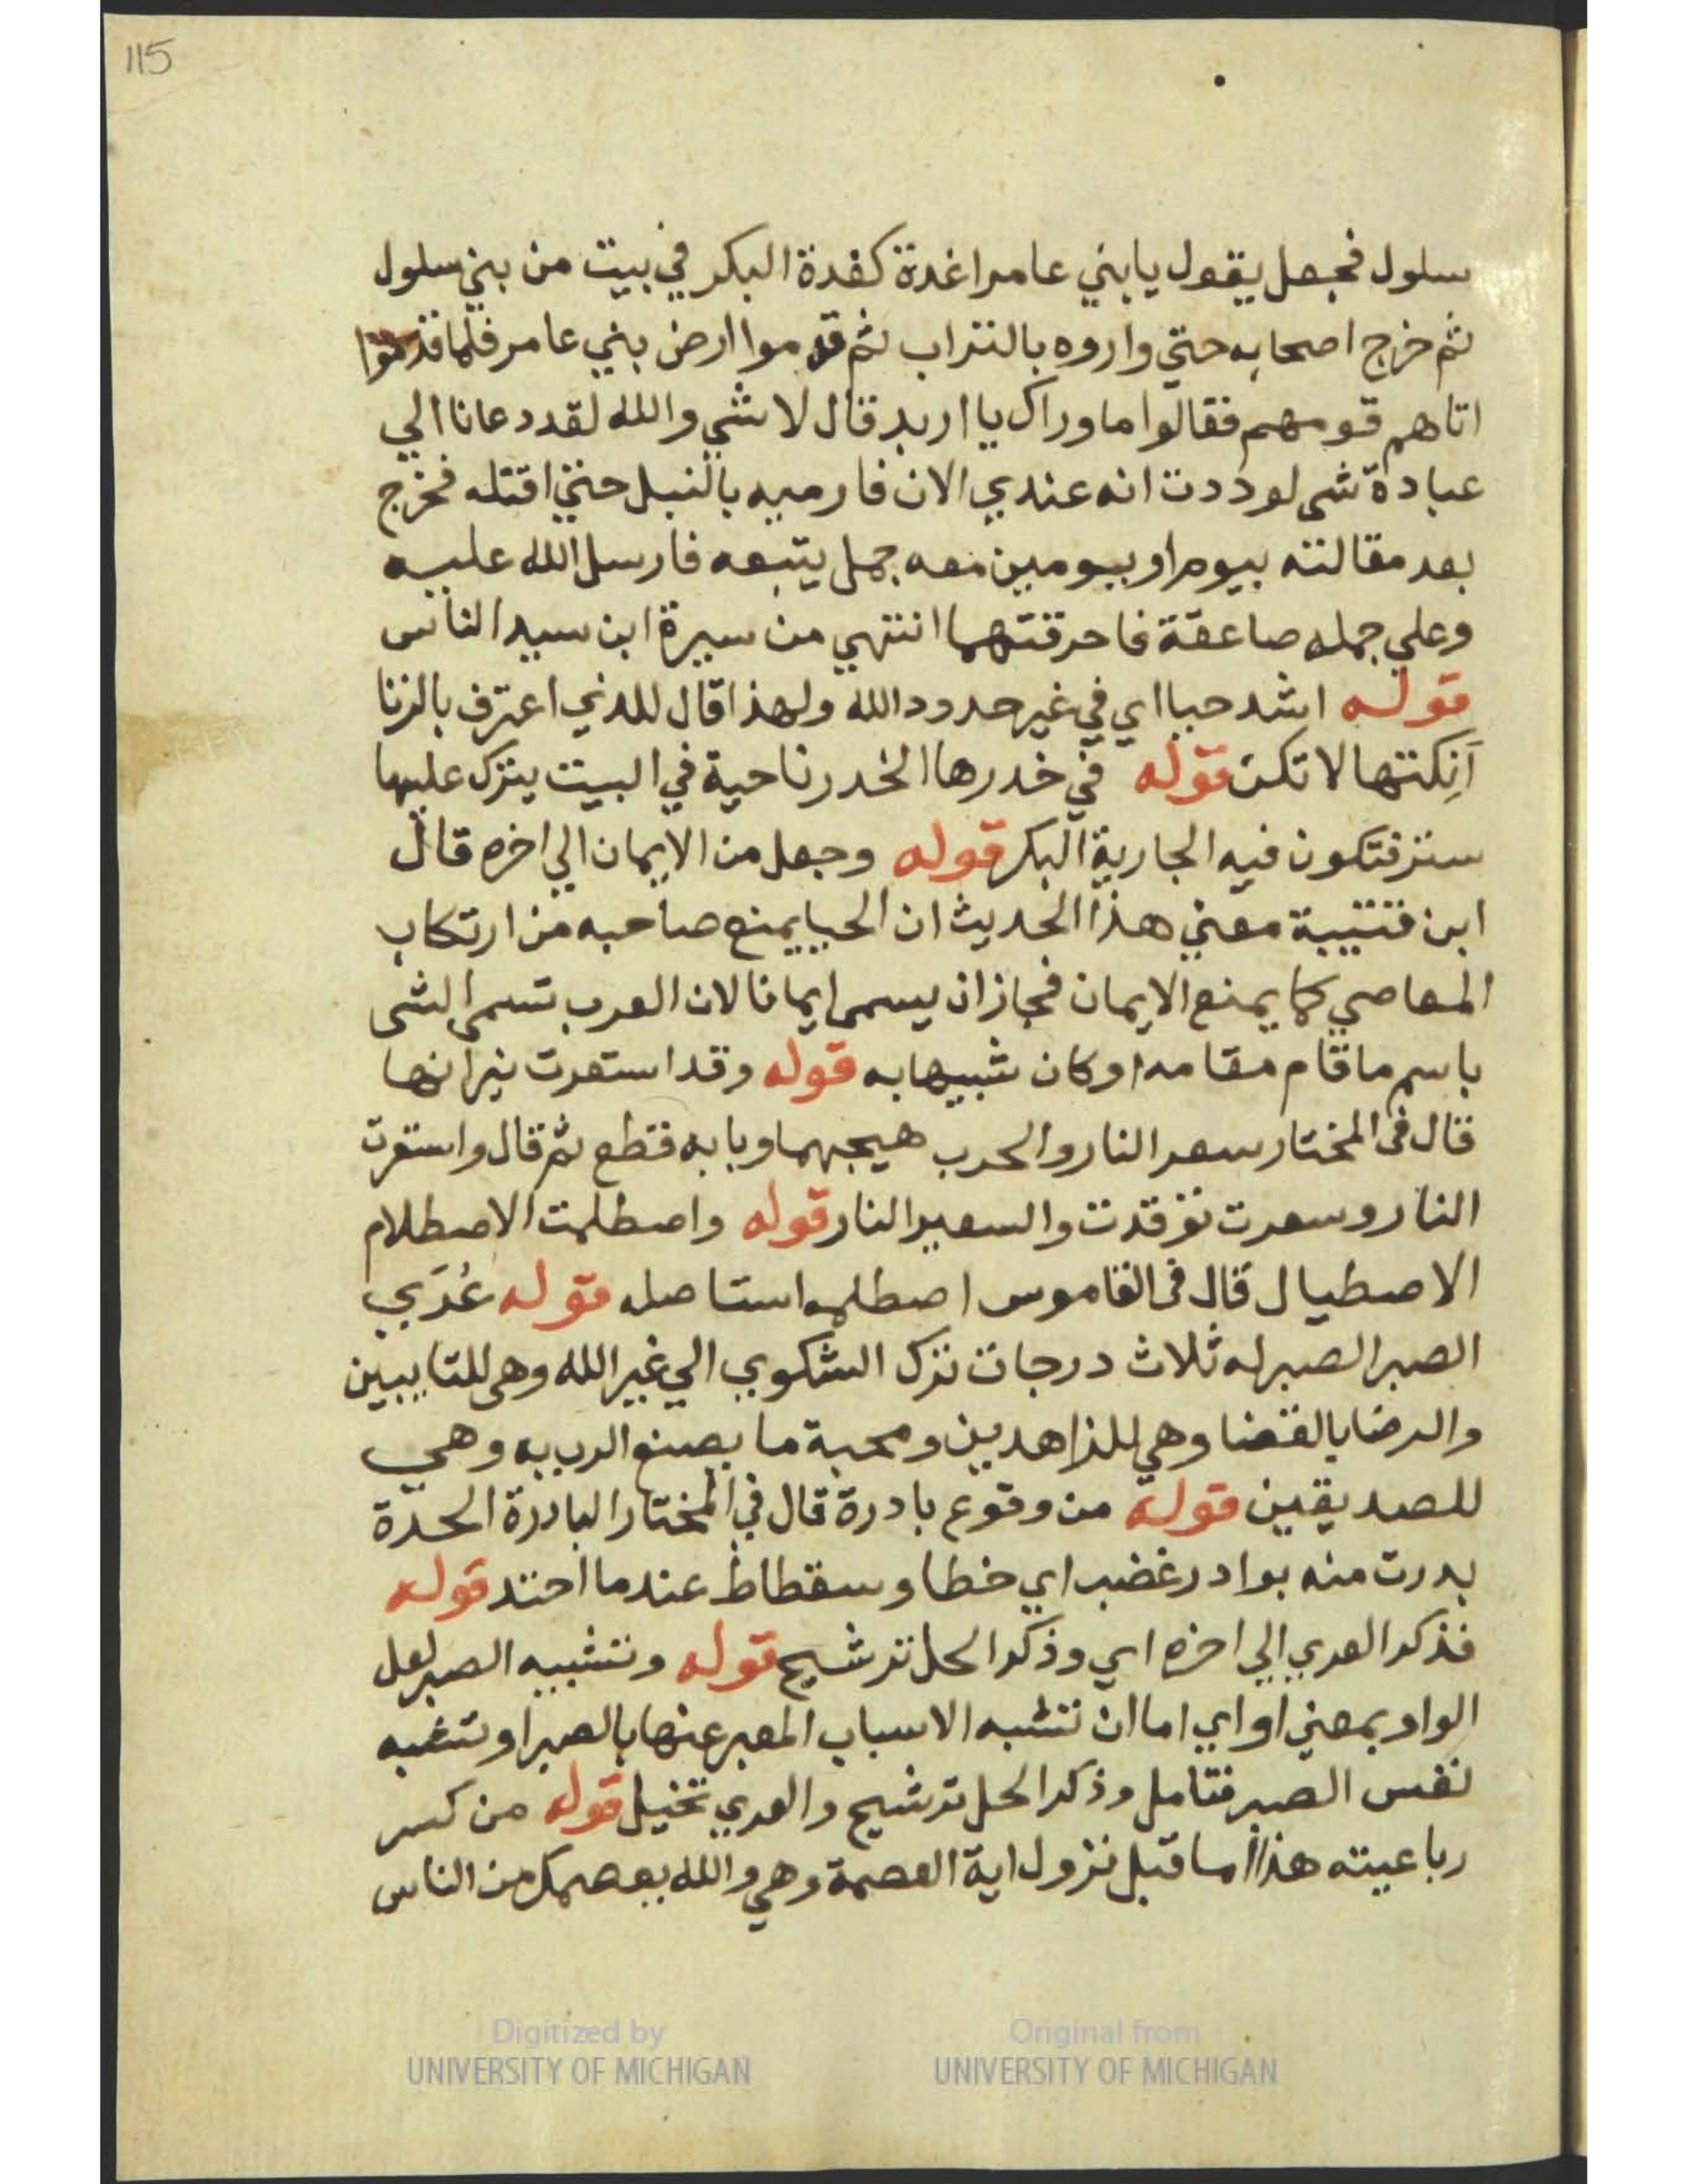 115
سلول فجعل يقول يابني عامر اغدة كغدة البكر في بيت من بني سلول
ثم خرج اصحابه حتي واروه بالتراب ثم قدموا ارض بني عامر فلما قدموا
اتاهم قومهم فقالوا ما وراك يا اربد قال لا شي والله لقد دعانا الي
عبادة شي لوددت انه عندي الان فارميه بالنبل حتي اقتله فخرج
بعد مقالته بيوم او بيومين معه جمل يتبعه فارسل الله عليه
وعلي جمله صاعقة فاحرقتهما انتهي من سيرة ابن سيد الناس
قوله اشد حبا اي في غير حدود الله ولهذا قال للذي اعترف بالزنا
أنِكتها لا تكن قوله في خدرها الخدر ناحية في البيت يترك عليها
ستر فتكون فيه الجارية البكر قوله وجعل من الايمان الي اخره قال
ابن قتيبة معني هذا الحديث ان الحيا يمنع صاحبه من ارتكاب
المعاصي كما يمنع الايمان فجاز ان يسمى ايمانا لان العرب تسمى الشى
باسم ما قام مقامه او كان شبيها به قوله وقد استعرت نيرانها
قال فى المختار سعر النار والحرب هيجهما وبابه قطع ثم قال واستعرت
النار وسعرت توقدت والسعير النار قوله واصطلمت الاصطلام
الاصطيال قال فى القاموس اصطلمه استاصله قوله عُرَي
الصبر الصبر له ثلاث درجات ترك الشكوي الي غير الله وهى للتايبين
والرضا بالقضا وهي للزاهدين ومحبة ما يصنع الرب به وهي
للصديقين قوله من وقوع بادرة قال في المختار البادرة الحدة
بدرت منه بوادر غضب اي خطا وسقطاط عندما احتد قوله
فذكر العري الي اخره اي وذكر الحل ترشيح قوله وتشبيه الصبر لعل
الواو بمعني او اي اما ان تشبه الاسباب المعبر عنها بالصبر او تشبه
نفس الصبر فتامل وذكر الحل ترشيح والعري تخييل قوله من كسر
رباعيته هذا اما قبل نزول اية العصمة وهي والله يعصمك من الناس
Digitized by
UNIVERSITY OF MICHIGAN
Original from
UNIVERSITY OF MICHIGAN